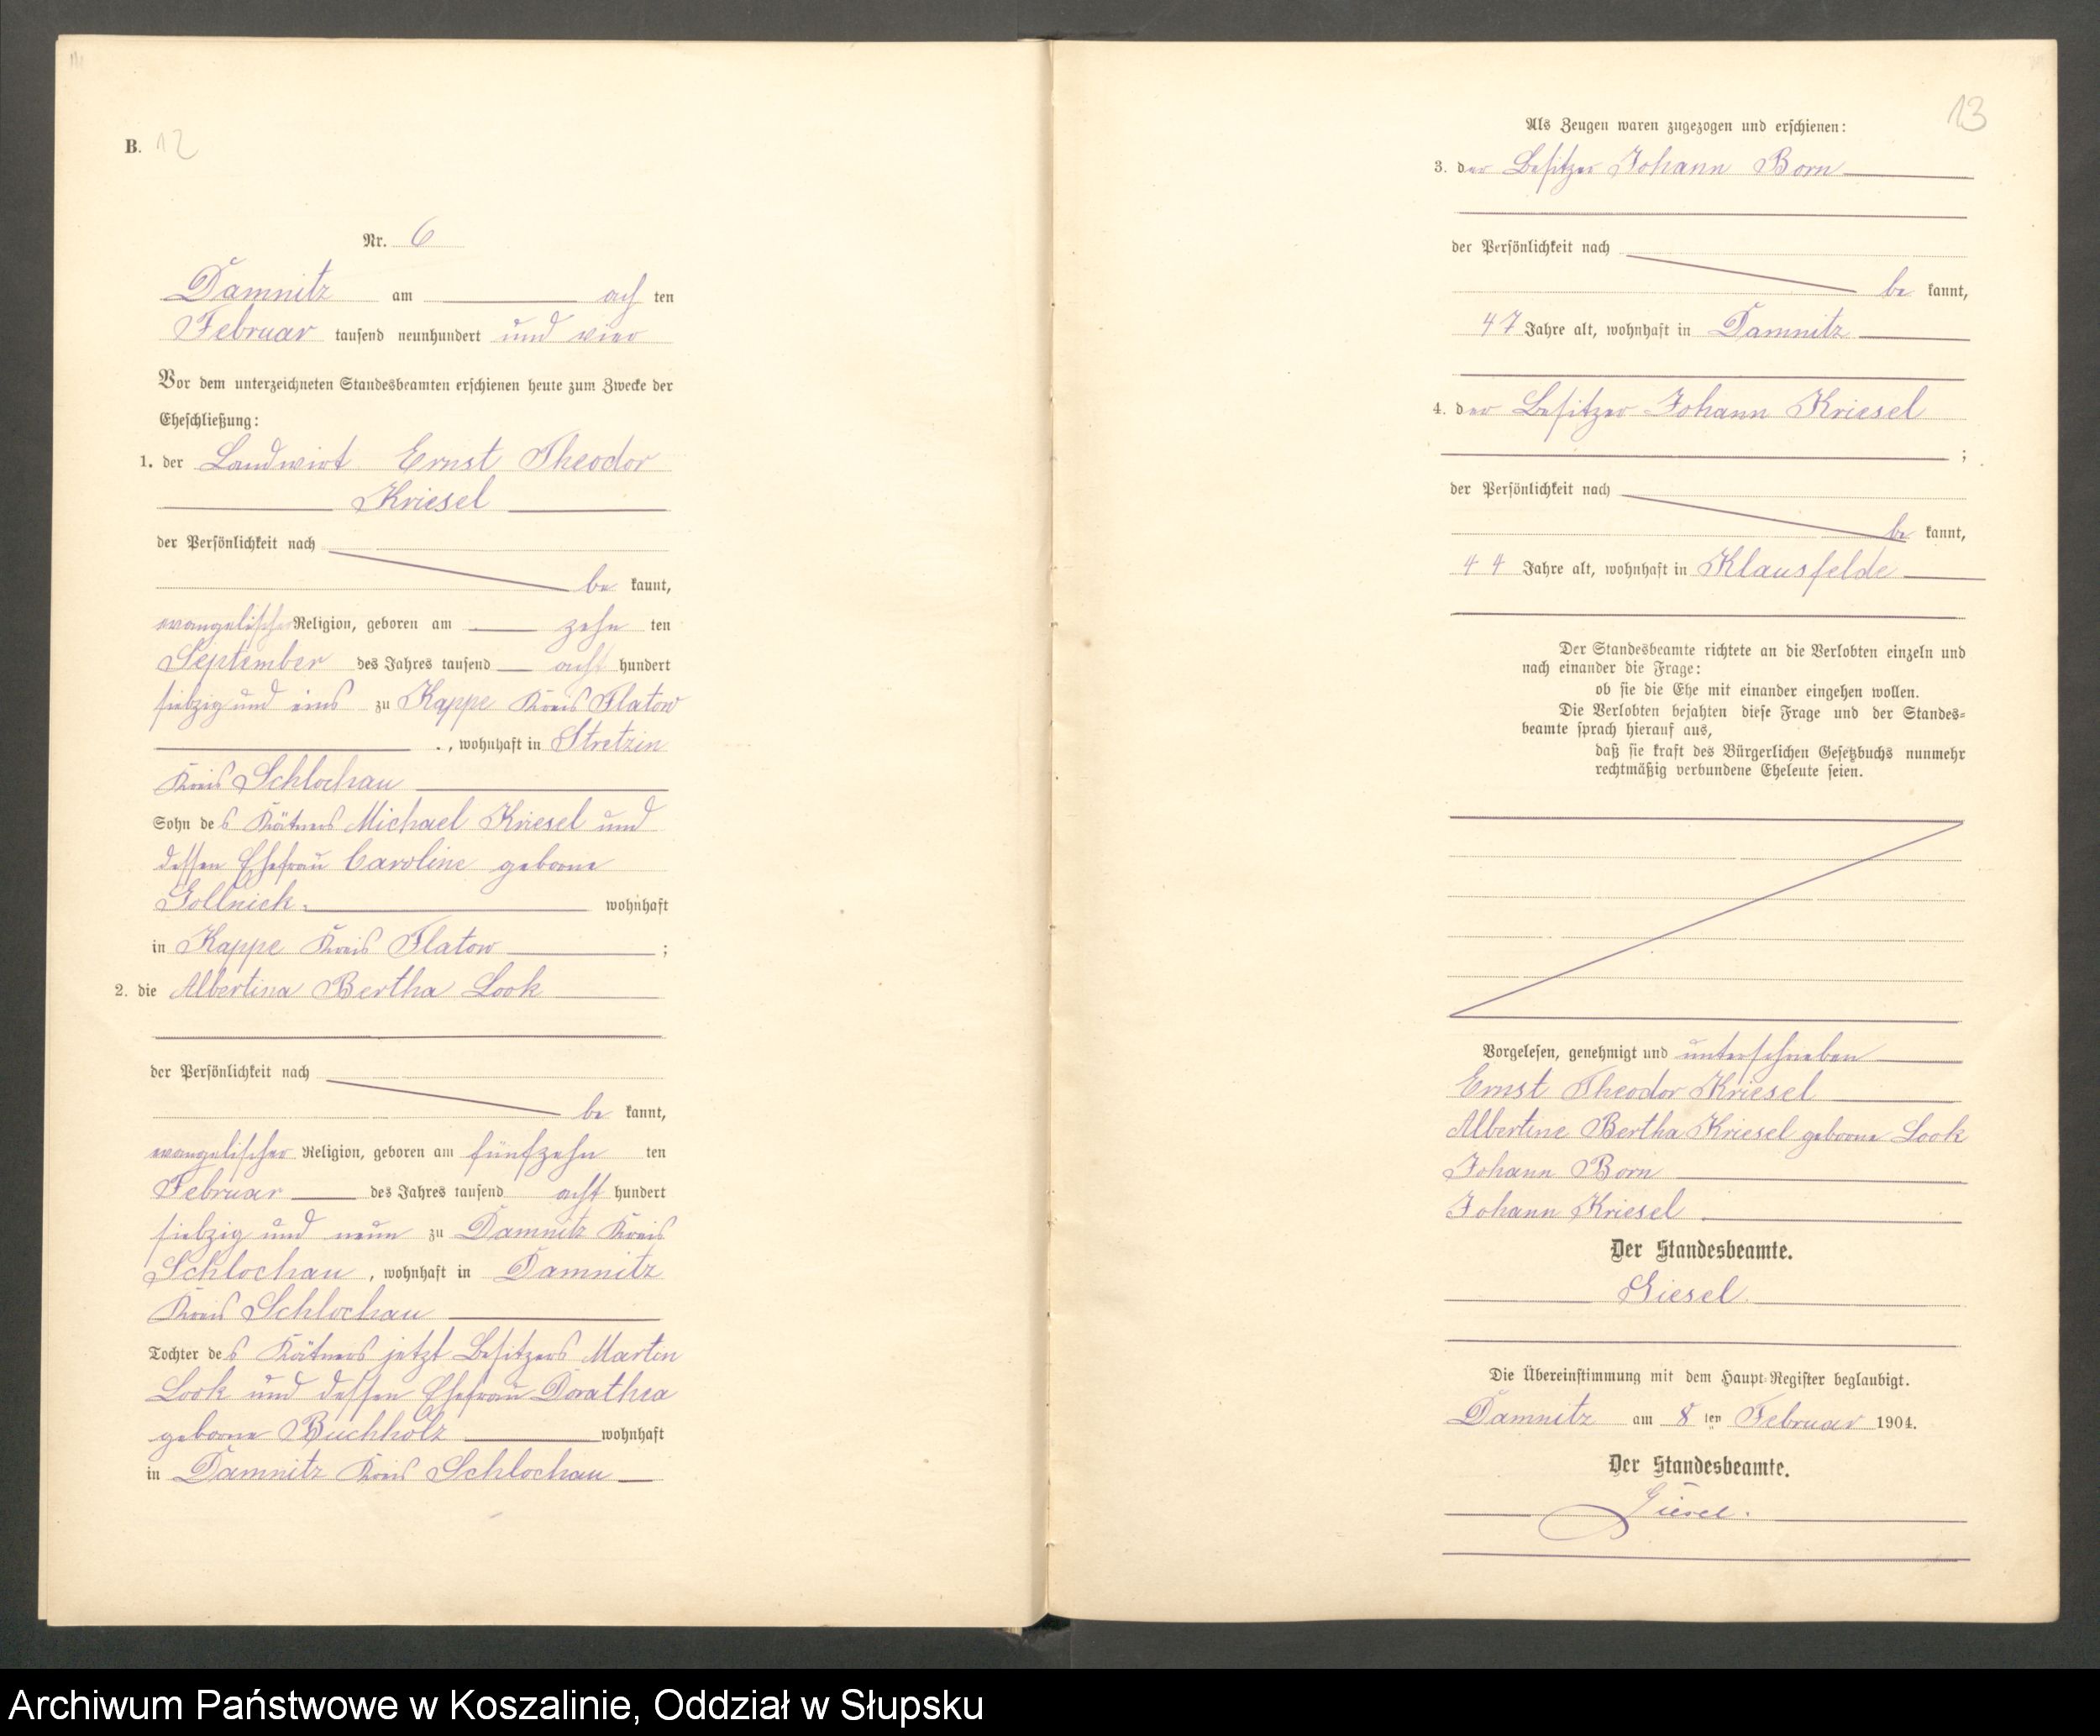 B. 12
Nr. 6
Damnitz am achten
Februar tausend neunhundert und vier
Vor dem unterzeichneten Standesbeamten erschienen heute zum Zwecke der
Eheschließung:
1. der Landwirt Ernst Theodor
Kriesel
der Persönlichkeit nach
be kannt,
evangelischer Religion, geboren am zehn ten
September des Jahres tausend acht hundert
siebzig und eins zu Kappe Kreis Flatow
, wohnhaft in Stretzin
Kreis Schlochau
Sohn des Kätners Michael Kriesel und
dessen Ehefrau Caroline geborne
Gollnick. wohnhaft
in Kappe Kreis Flatow ;
2. die Albertina Bertha Look
der Persönlichkeit nach
be kannt,
evangelischer Religion, geboren am fünfzehn ten
Februar des Jahres tausend acht hundert
siebzig und neun zu Damnitz Kreis
Schlochau, wohnhaft in Damnitz
Kreis Schlochau
Tochter des Kätners jetzt Besitzers Martin
Look und dessen Ehefrau Dorathea
geborne Buchholz wohnhaft
in Damnitz Kreis Schlochau
13
Als Zeugen waren zugezogen und erschienen:
3. der Besitzer Johann Born
der Persönlichkeit nach
be kannt,
47 Jahre alt, wohnhaft in Damnitz
4. der Besitzer Johann Kriesel
;
der Persönlichkeit nach
be kannt,
44 Jahre alt, wohnhaft in Klausfelde
Der Standesbeamte richtete an die Verlobten einzeln und
nach einander die Frage:
ob sie die Ehe mit einander eingehen wollen.
Die Verlobten bejahten diese Frage und der Standes-
beamte sprach hierauf aus,
daß sie kraft des Bürgerlichen Gesetzbuchs nunmehr
rechtmäßig verbundene Eheleute seien.
Vorgelesen, genehmigt und unterschrieben
Ernst Theodor Kriesel
Albertine Bertha Kriesel geborne Look
Johann Born
Johann Kriesel
Der Standesbeamte.
Giesel.
Die Übereinstimmung mit dem Haupt-Register beglaubigt.
Damnitz am 8 ten Februar 1904.
Der Standesbeamte.
Giesel.
Archiwum Państwowe w Koszalinie, Oddział w Słupsku